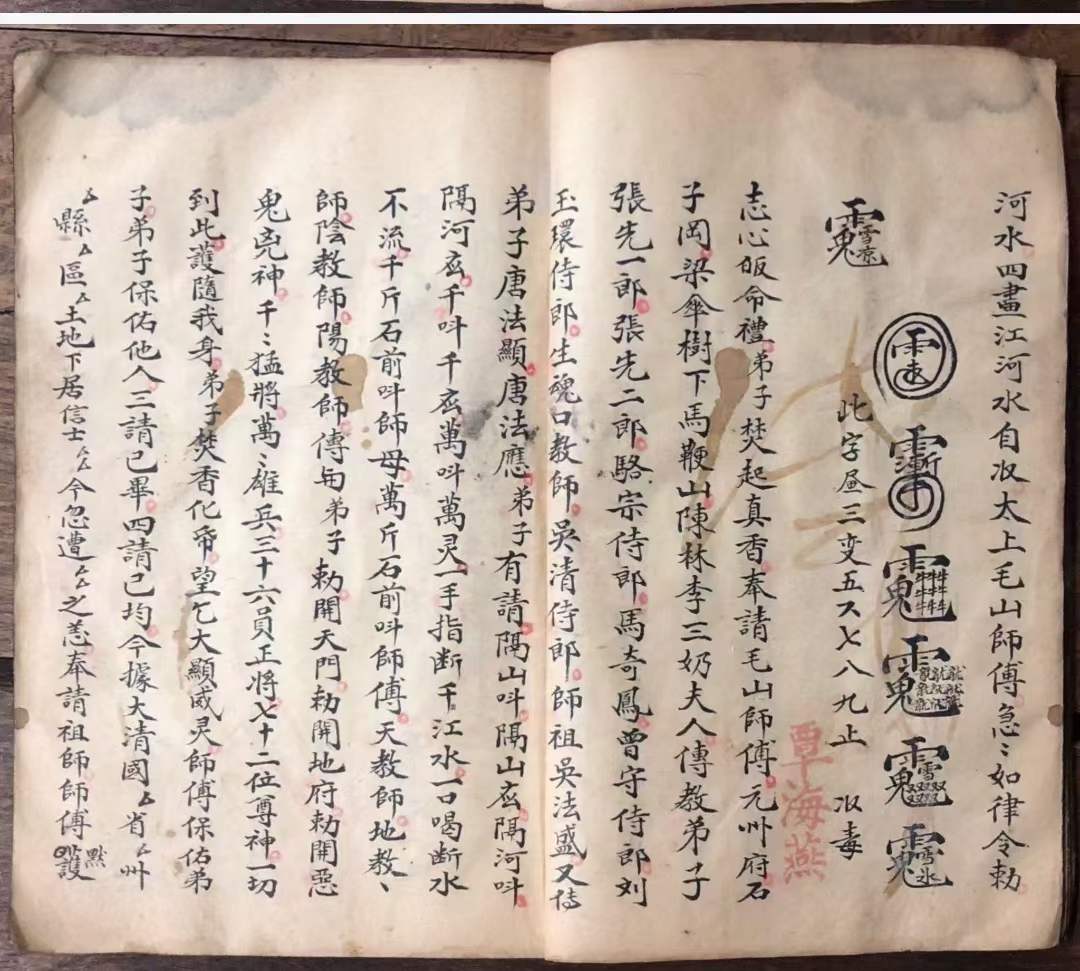 河水四畫江河水自收太上毛山師傅急〻如律令勅
此字昼三变五又七八九止 收毒
覃海燕
志心皈命禮弟子焚起真香奉請毛山師傅元州府石
子岡梁傘樹下馬鞭山陳林李三奶夫人傳教弟子
張先一郎張先二郎駱宗侍郎馬奇鳳曾守侍郎刘
玉環侍郎生魂口教師吳清侍郎師祖吳法盛又侍
弟子唐法顯唐法應弟子有請隔山呌隔山应隔河呌
隔河应千呌千应萬呌萬灵一手指断千江水一口喝断水
不流千斤石前呌師母萬斤石前呌師傅天教師地教、
師陰教師陽教師傅旬弟子勅開天門勅開地府勅開惡
鬼兇神千〻猛將萬〻雄兵三十六員正将七十二位尊神一切
到此護隨我身弟子焚香化帋望乞大顯威灵師傅保佑弟
子弟子保佑他人三請已畢四請已均今據大清國厶省厶州
厶縣厶區厶土地下居信士厶厶今忽遭厶厶之恙奉請祖師師傅默護